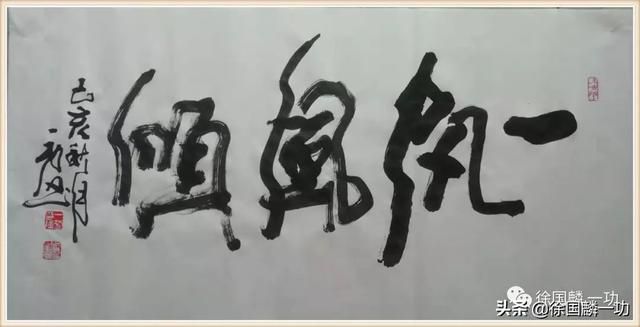 一帆風順
己亥
徐国麟一功
头条 @徐国麟一功